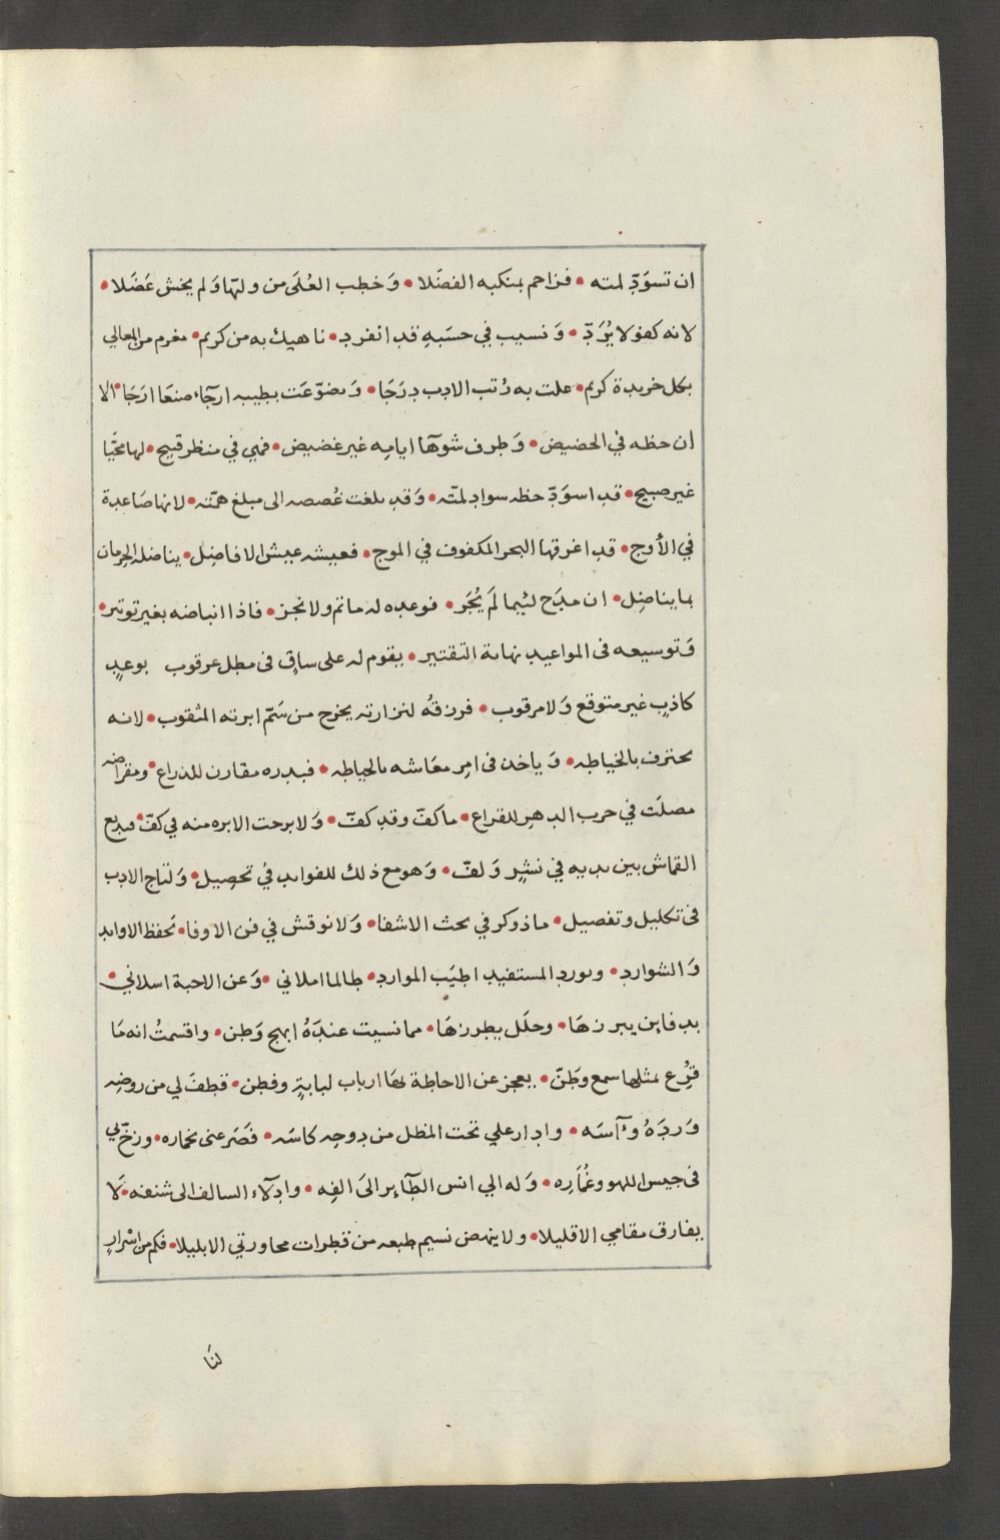 ان تسوَدّ لمته • فزاحم بمنكبه الفضَلا • وَخطب العُلَى من وليّها وَلم يخش عَضَلا •
لانه كفو لا يُرَدّ • وَنسيب في حسَبهِ قد انفرد • ناهيك به من كريم • مغرم من المعالي
بكل خريدة كريم • علت به رُتب الادب درَجَا • وَتضوّعَت بطيبه ارجآء صنعَا ارَجَا • الا
ان حظه في الحضيض • وَطرف شوهآا ايامه غير غضيض • فهي في منظر قبيح • لها محيّا
غير صبيح • قد اسوَدّ حظه سواد لمّته • وَقد بلغت غُصصه الى مبلغ همّته • لانها صَاعدة
في الأوج • قد اغرقها البحر المكفوف في الموج • فعيشه عيش الافاضِل • يناضله الحِرمان
بما يناضِل • ان مدَح لئيما لَم يُجَر • فوعده له ما تم ولا نجز • فاذا انباضه بغير توتير •
وَتوسيعه فى المواعيد نهاية التقتير • يقوم له على ساقٍ فى مطل عرقوب بوعدٍ
كاذبٍ غير متوقع وَلا مرقوب • فرزقهُ لنزارته يخرج من سَمّ ابرته المثقوب • لانه
محترف بالخياطه • وَياخذ فى امرِ معَاشه بالحياطه • فبدره مقارن للذراع • ومقراضه
مصلَت في حرب الدهرِ للقراع • ما كفّ وقد كفّ • وَلا برحت الابره منه في كفّ • فبديع
القماش بين يديه في نشرٍ وَلفّ • وَهو مع ذلك للفوايد في تحصِيل • وَلتاج الادب
فى تكليل وتفصيل • ما ذوكر في بحث الاشفا • وَلا نوقش في فن الاوفا • تَحفظ الاوابد
وَالشوارد • ويورد المستفيد اطيَب الموارد • طالما املاني • وَعن الاحبة اسلاني •
بدفاين يبرزهَا • وحلَل يطرزهَا • مما نسيت عندَهُ ابهج وَطن • واقسمتُ انه مَا
قرُِع بمثلها سمع وَطَنّ • يعجز عن الاحاطة بهَا ارباب لبابةٍ وفطن • قطفَ لي من روضِه
وَردَهُ وءآسَه • وادار علي تحت المظل من دوحه كاسَه • فَصَرعنى بخماره • وزخّ بي
فى جيس اللهو وغُمَارِه • وَله الي انس الطآيِر الىَ الفِه • وادلآء السالف الى شنفه • لَا
يفارق مقامي الا قليلا • ولا ينهض نسيم طبعه من قطرات محاورتي الا بليلا • فكم من اسْرارٍ
لنَا